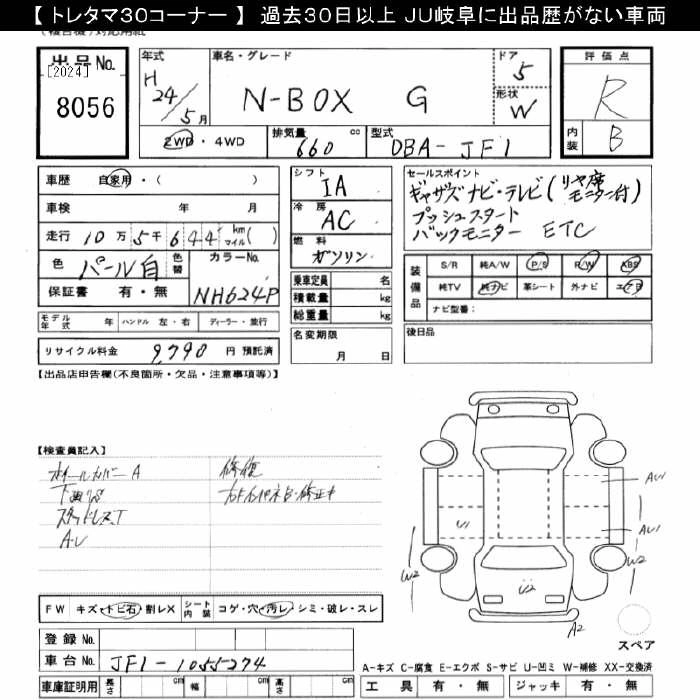 【 トレタマ30コーナー 】 過去30日以上 JU岐阜に出品歴がない車両
出品No.
[2024]
8056
年式
H
24/5月
車名・グレード
N-BOX G
ドア
5
形状
W
評価点
R
内装
B
2WD・4WD
排気量
660 cc
型式
DBA-JF1
車歴 自家用・( )
車検 年 月
走行 10万5千644 km マイル( )
色 パール白 色替
カラーNo.
NH624P
保証書 有・無
シフト
IA
冷房
AC
燃料
ガソリン
セールスポイント
ギャザズナビ・テレビ(リヤ席モニター付)
プッシュスタート
バックモニター ETC
装備品
S/R 純A/W P/S R/W ABS
純TV 純ナビ 革シート 外ナビ エアB
ナビ型番:
乗車定員 名
積載量 kg
総重量 kg
モデル年式 年 ハンドル 左・右 ディーラー・並行
名変期限
月 日
後日品
リサイクル料金 9,790 円 預託済
【出品店申告欄(不良箇所・欠品・注意事項等)】
【検査員記入】
ホイールカバーA
下廻りS
スタッドレスT
A・U
修復
AU1
AU1
U1
W2
W2
U2
A2
スペア
FW キズ・トビ石・割レX シート内装 コゲ・穴・汚レ・シミ・破レ・スレ
登録No.
車台No. JF1-1055274
車庫証明用 長さ cm 幅 cm 高さ cm
A-キズ C-腐食 E-エクボ S-サビ U-凹ミ W-補修 XX-交換済
工具 有・無 ジャッキ 有・無